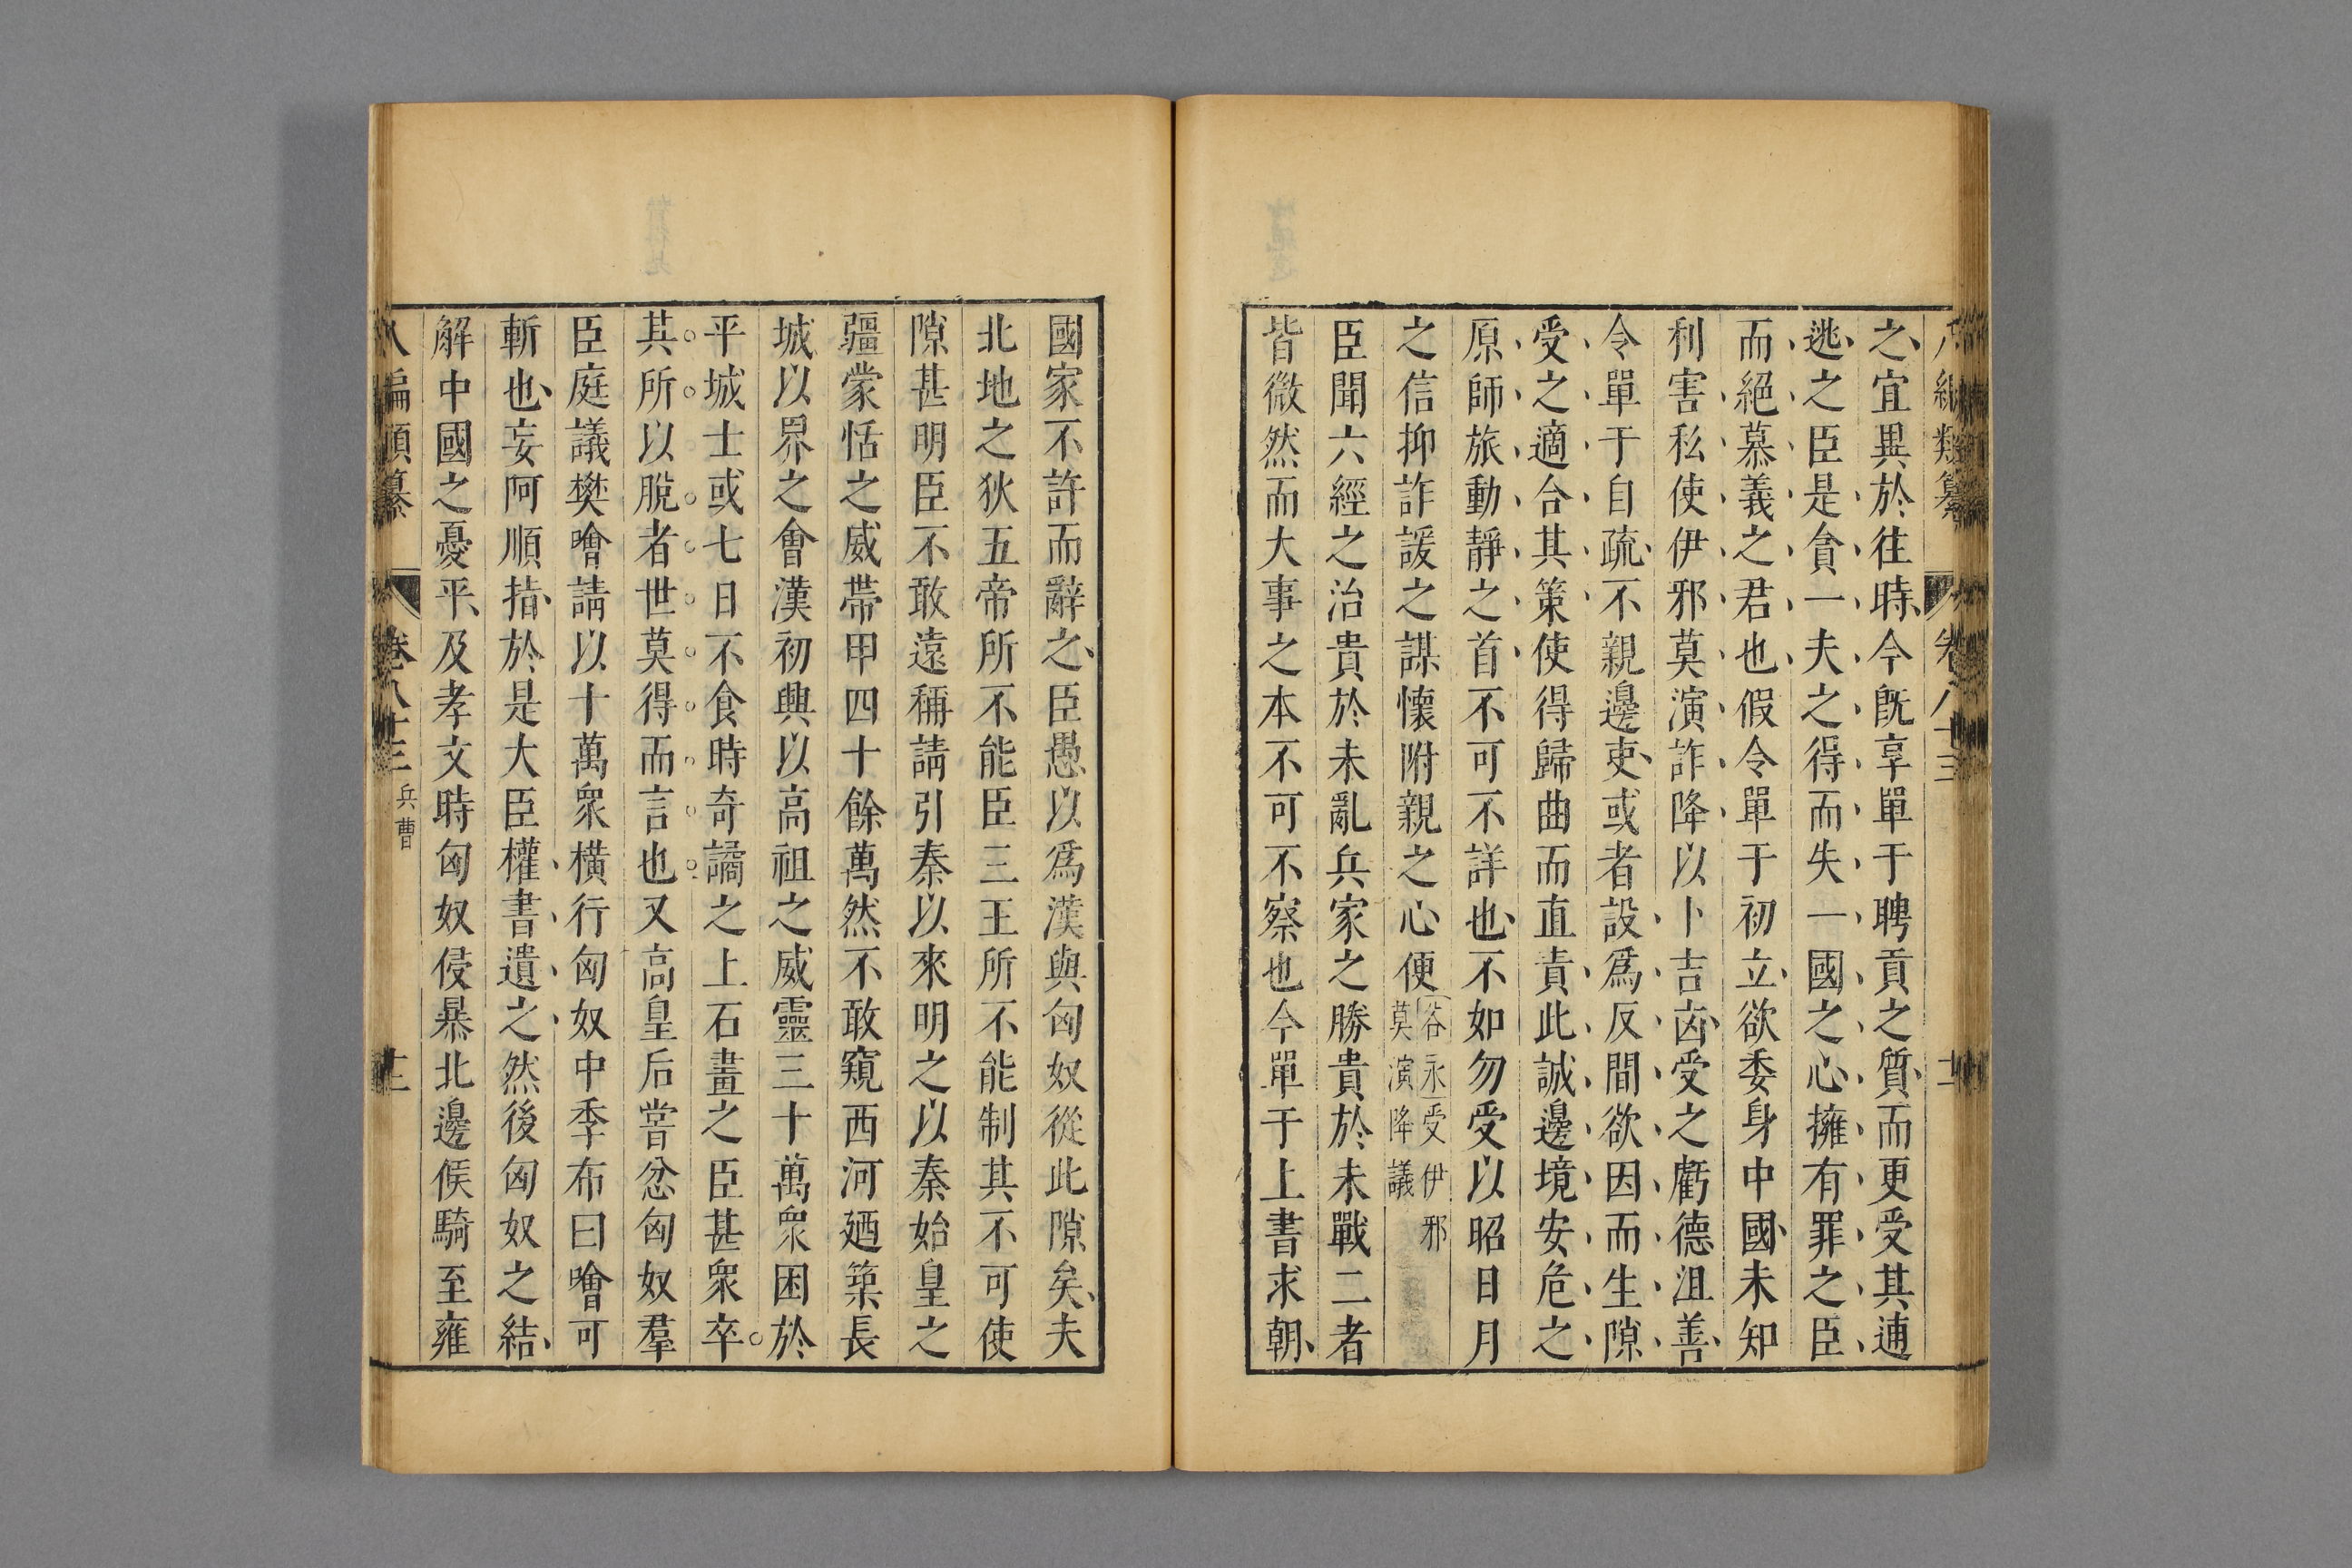 八編類纂 卷八十三
之宜異於徃時今旣享單于聘貢之質而更受其逋
逃之臣是貪一夫之得而失一國之心擁有罪之臣
而絕慕義之君也假令單于初立欲委身中國未知
利害私使伊邪莫演詐降以卜吉凶受之虧德沮善
令單于自疏不親邊吏或者設爲反間欲因而生隙
受之適合其策使得歸曲而直責此誠邊境安危之
原師旅動靜之首不可不詳也不如勿受以昭日月
之信抑詐諼之謀懷附親之心便谷永受伊邪莫演降議
臣聞六經之治貴於未亂兵家之勝貴於未戰二者
皆微然而大事之本不可不察也今單于上書求朝
國家不許而辭之臣愚以爲漢與匈奴從此隙矣夫
北地之狄五帝所不能臣三王所不能制其不可使
隙甚明臣不敢遠稱請引秦以來明之以秦始皇之
疆蒙恬之威帶甲四十餘萬然不敢窺西河廼築長
城以界之會漢初興以高祖之威靈三十萬衆困於
平城士或七日不食時奇譎之上石畫之臣甚衆卒
其所以脫者世莫得而言也又高皇后嘗忿匈奴羣
臣庭議樊噲請以十萬衆橫行匈奴中季布曰噲可
斬也妄阿順指於是大臣權書遺之然後匈奴之結
解中國之憂平及孝文時匈奴侵暴北邊候騎至雍
八編類纂 卷八十三 兵曹 十二